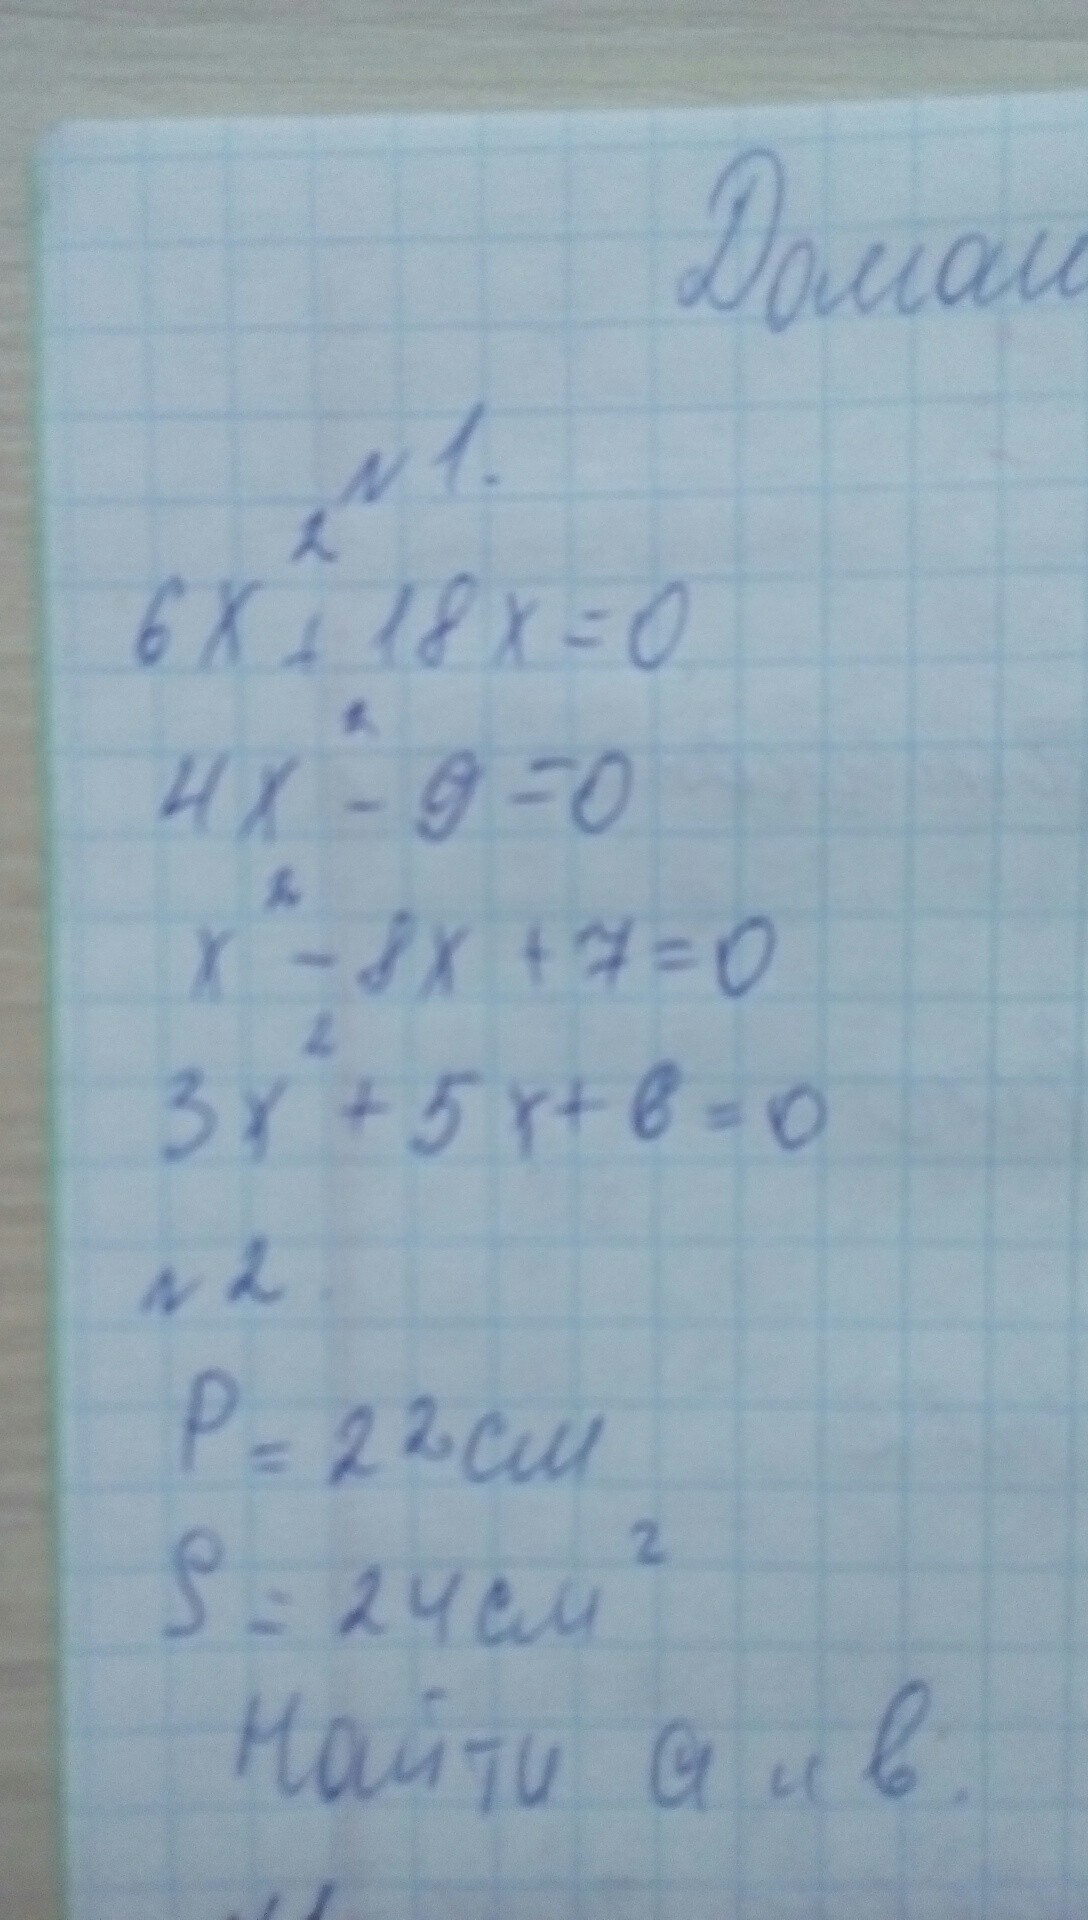 Домаш
N 1.
6x² + 18x = 0
4x² - 9 = 0
x² - 8x + 7 = 0
3x² + 5x + 6 = 0
N 2.
P = 22 см
S = 24 см²
Найти a и в.